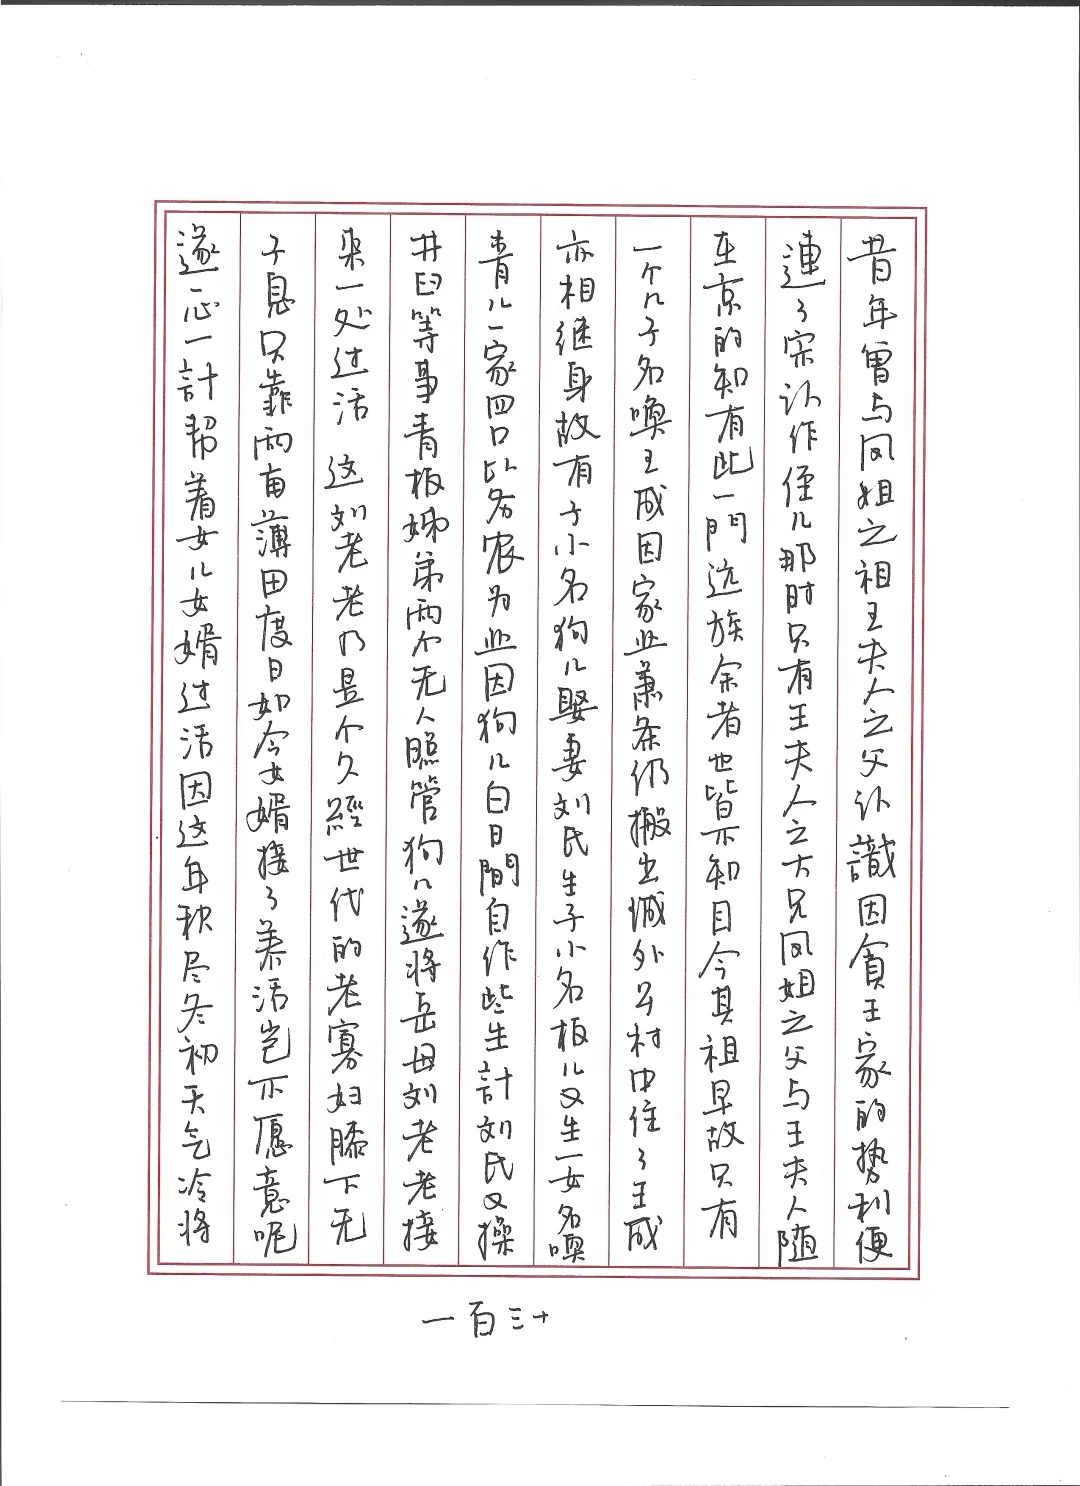 昔年曾与凤姐之祖王夫人之父认識因貪王家的势利便
連了宗认作侄儿那时只有王夫人之大兄凤姐之父与王夫人随
在京的知有此一門远族余者也皆不知目今其祖早故只有
一个儿子名喚王成因家业萧条仍搬出城外乡村中住了王成
亦相继身故有子小名狗儿娶妻刘氏生子小名板儿又生一女名喚
青儿一家四口以务农为业因狗儿白日間自作些生計刘氏又操
井臼等事青板姊弟兩个无人照管狗儿遂将岳母刘老老接
来一处过活 这刘老老乃是个久經世代的老寡妇膝下无
子息只靠兩亩薄田度日如今女婿接了养活岂不愿意呢
遂一心一計帮着女儿女婿过活因这年秋尽冬初天气冷将
一百三十